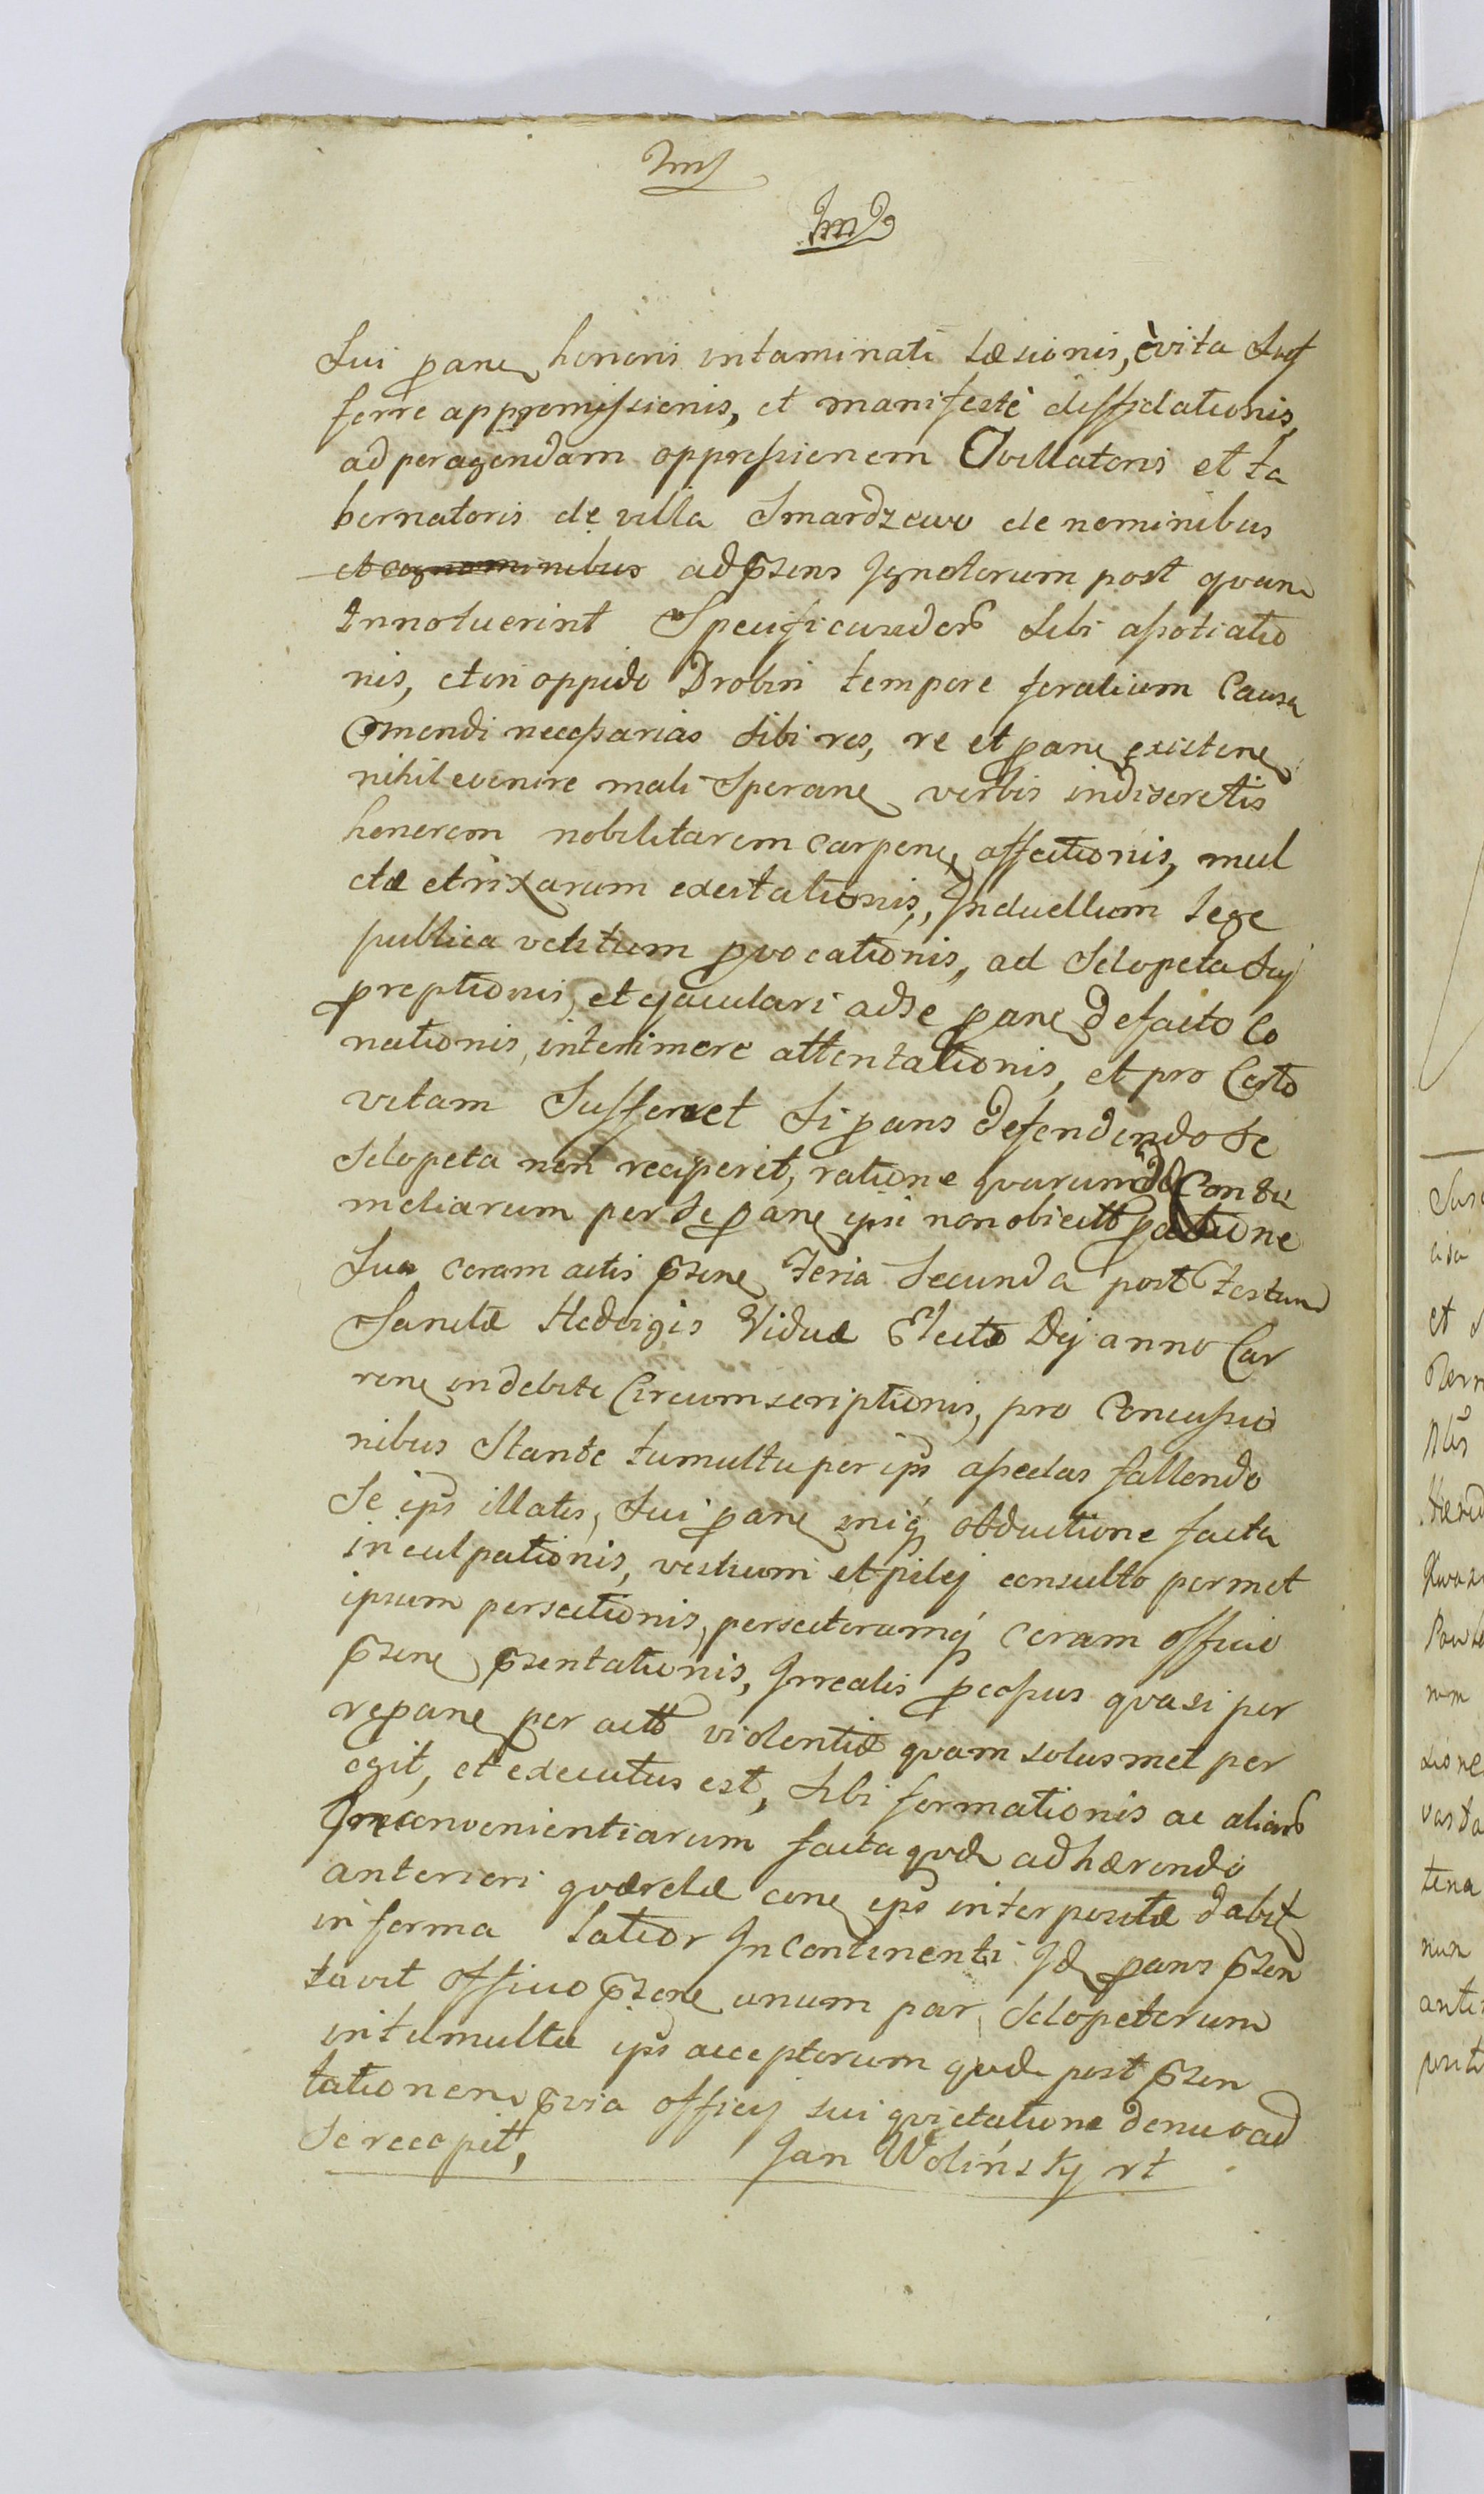 Sui pane honoris intaminati læsionis, è vita suf
ferre appromissionis, et manifestè diffidationis,
ad peragendam oppressionem Ovillatoris et ta
bernatoris de villa Smardzewo de nominibus
et cognominibus ad pñsens Ignotorum post quam
Innotuerint Specificandorũ Sibi associatio
nis, et in oppido Drobin tempore foralium Causa
Emendi necessarias Sibi res, re et pane existene
nihil evenire mali Sperane verbis indiscretis
honorem nobilitarem carpene, affectionis, mul
ctæ et rixarum excitationis, In duellum lege
publica vetitum pvocationis, ad Sclopeta Suj
preptionis, et ejaculari ad Se pane de facto Co
nationis, interimere attentationis, et pro Certo
vitam Sufferret Si pans defendendo Se
Sclopeta non reciperet, ratione quarum Contu
meliarum per Se pane ipsi non obiectt
Sua coram actis pñsene Feria Secunda post Festum
Sanctæ Hedvigis Viduæ Electæ Dej anno Cur
rene indebitè Circumscriptionis, pro Concussio
nibus Stante tumultu per ips asseclas fallendo
Se ips illatis, Sui pane iniq obductione facta
inculpationis, vestium et pilej consulto permet
ipsum persectionis, persectorumq coram officio
pñsene pñsentationis, Irrealis pcessus quasi per
re pane per actt violentiæ quam solusmet per
egit, et executus est, Sibi formationis ac aliarũ
Inconvenientiarum facta quæ adhærendo
anteriori quærelæ cone ips interpositæ dabit
in forma latior In continenti Id pans pñsen
tavit officio pñsene unum par Sclopetorum
in tumultu ips acceptorum quæ post pñsen
tationem pvia officij sui quietatione denuo ad
Se recepit,
Jan Woliński rt